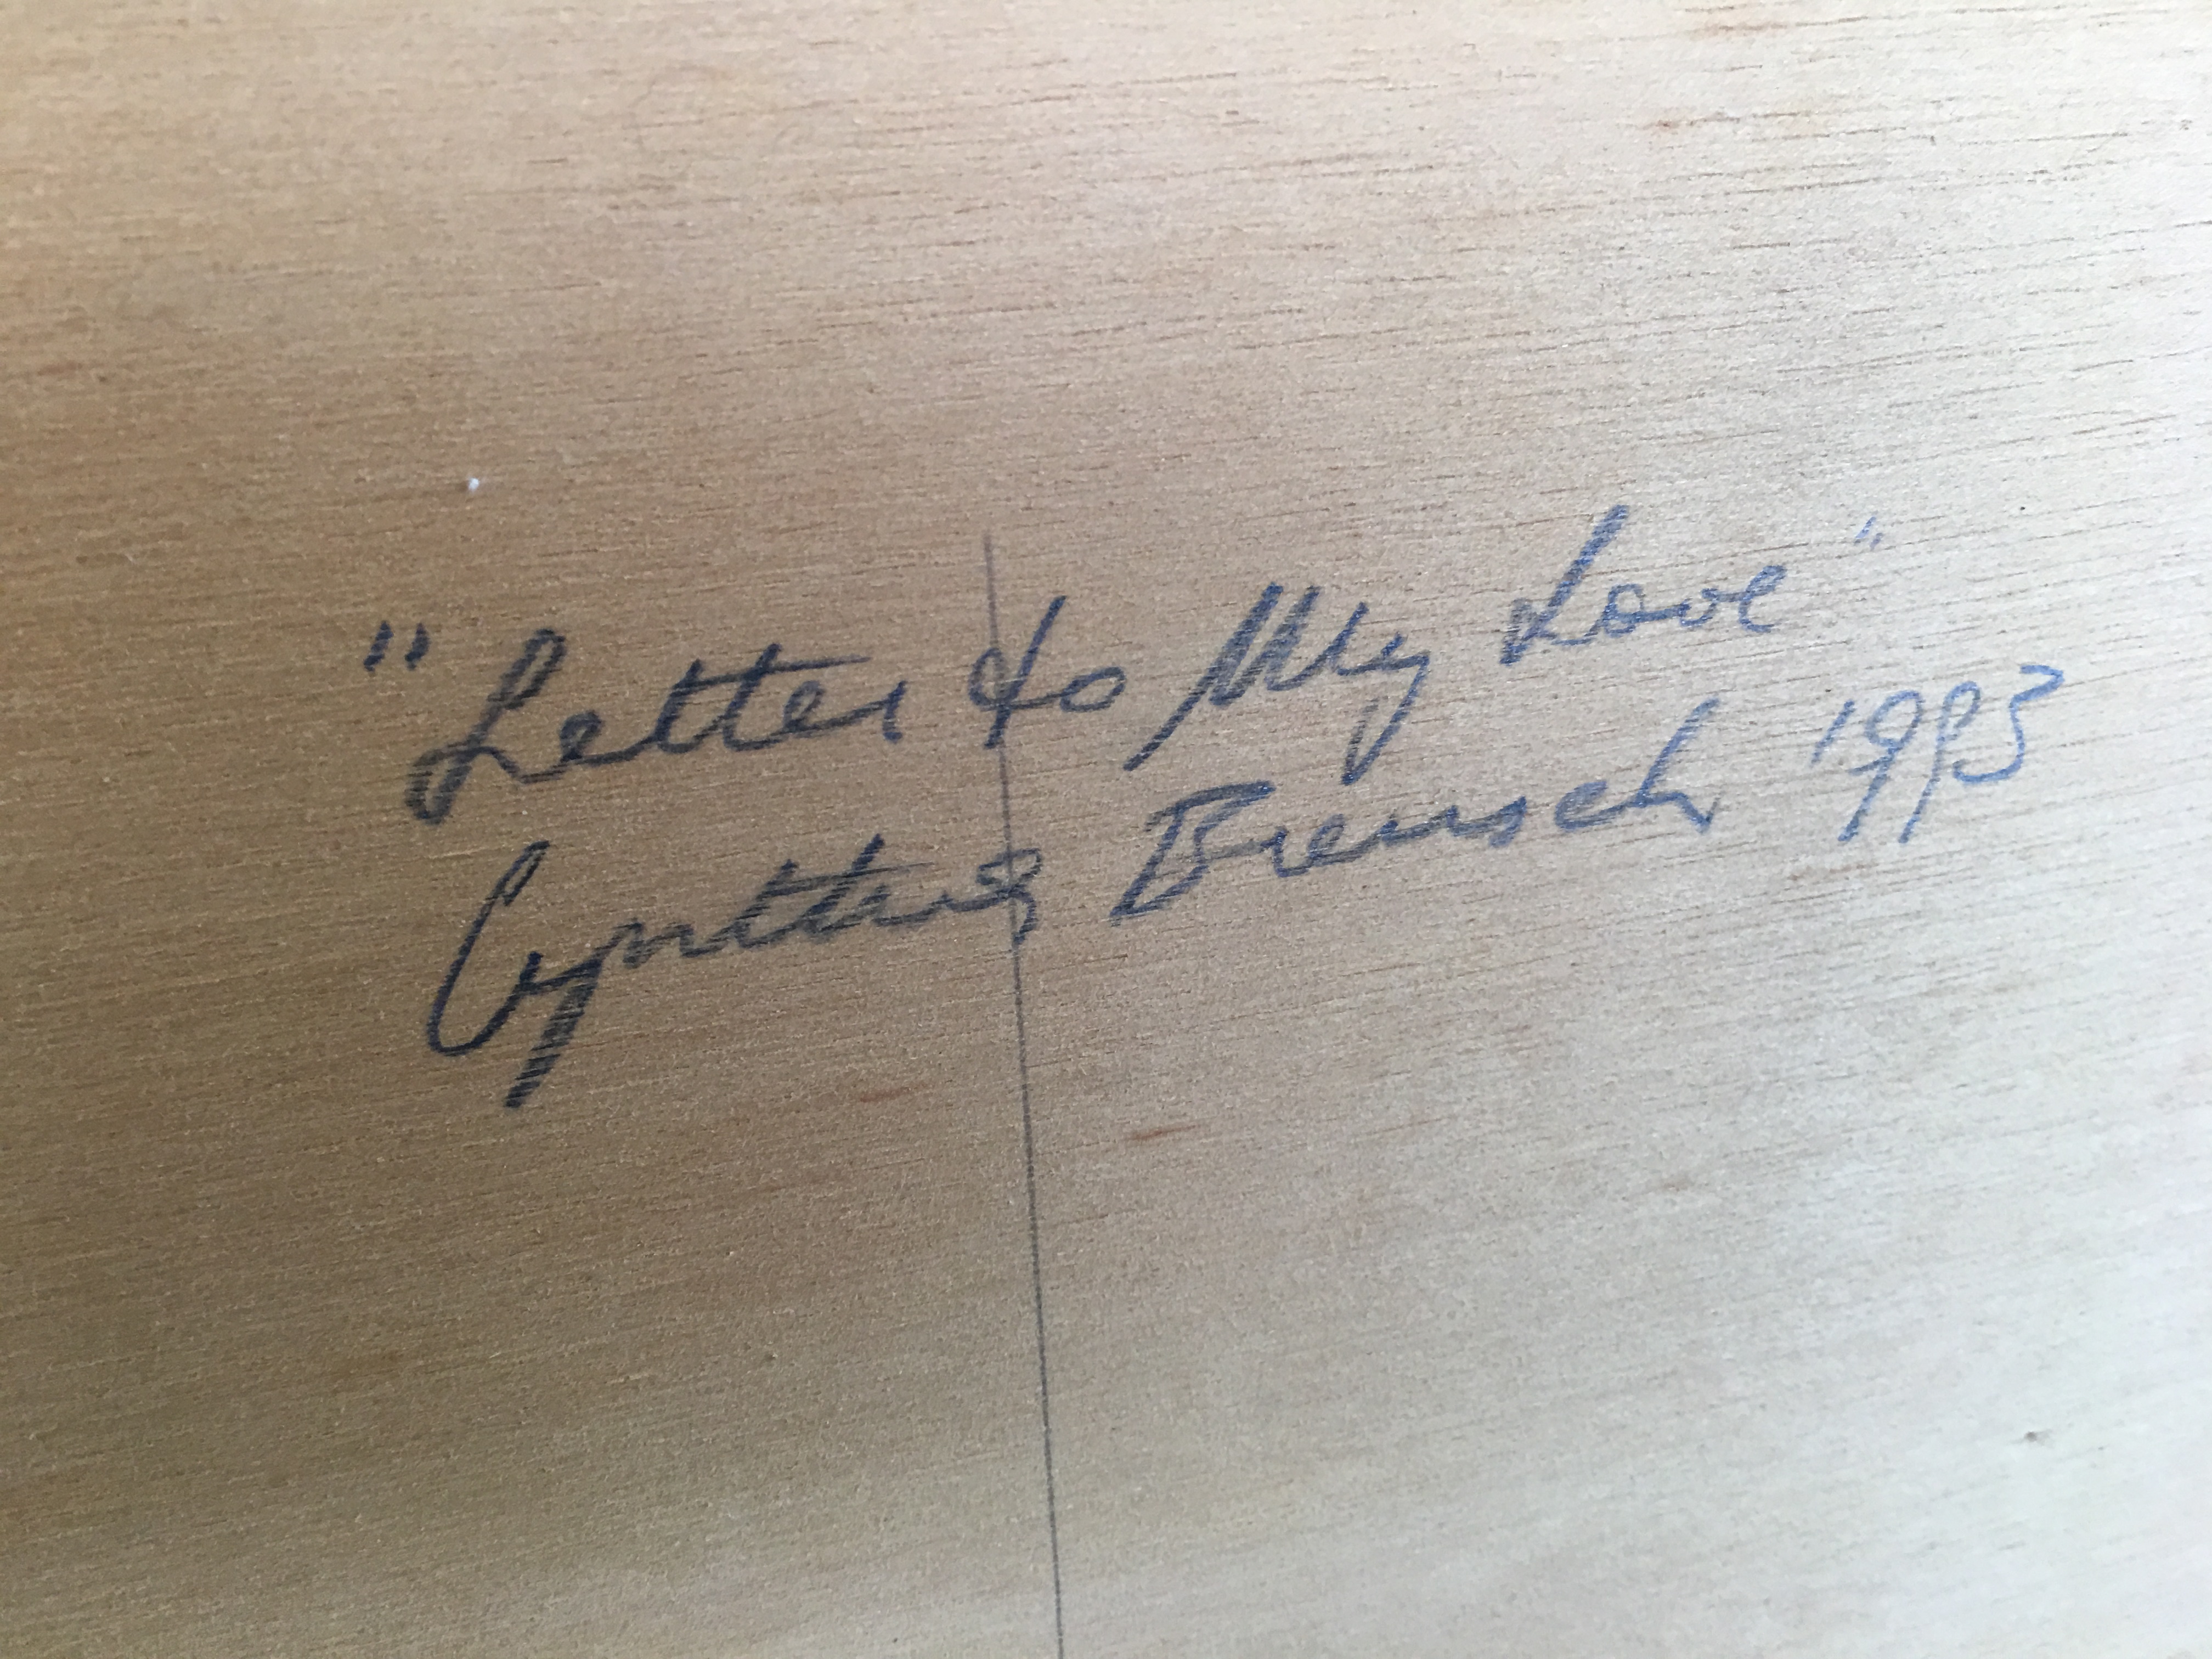 "Letter to My Love"
Cynthia Breusch 1993